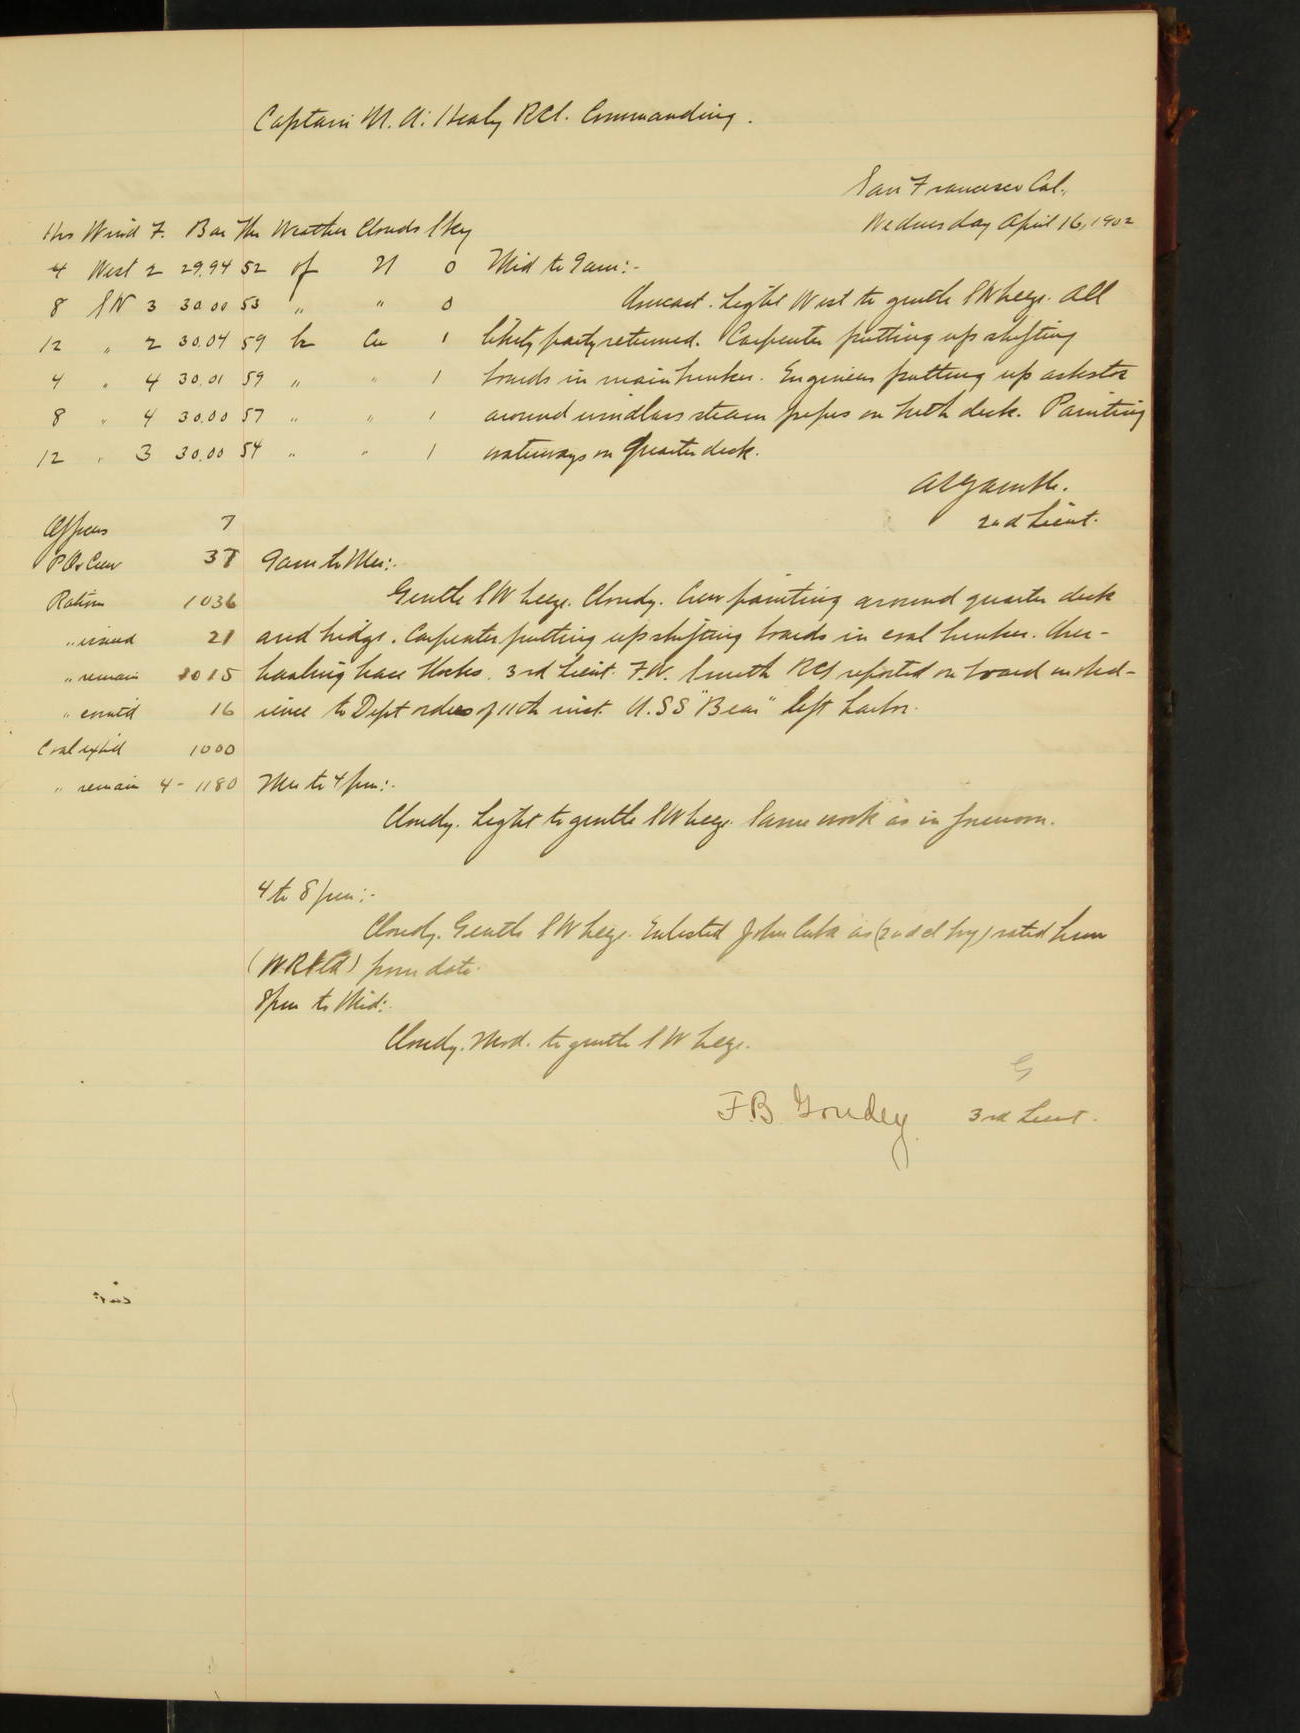 Captain M. A. Healy RCS. Commanding.
San Francisco Cal.
Wednesday April 16, 1902
Hrs Wind F. Bar Thr Weather Clouds Sky
4 West 2 29.94 52 of N 0 Mid to 9am:-
8 SW 3 30.00 53 " " 0 Overcast. Light West to gentle SW breeze. All
12 " 2 30.04 59 bc Cu 1 liberty party returned. Carpenter putting up shifting
4 " 4 30.01 59 " " 1 boards in main bunker. Engineers putting up asbestos
8 " 4 30.00 57 " " 1 around windlass steam pipes on berth deck. Painting
12 " 3 30.00 54 " " 1 waterways on Quarter deck.
2nd Lieut.
Officers 7
P.O. & Crew 37 9am to Mer:-
Rations 1036 Gentle SW breeze. Cloudy. Crew painting around quarter deck
" issued 21 and bridge. Carpenter putting up shifting boards in coal bunker. Over-
" remain 1015 hauling boat blocks. 3rd Lieut. F.W. Smith RCS reported on board in obed-
" comtd 16 ience to Dept orders of 11th inst. U.S.S "Bear" left harbor.
Coal expd 1000
" remain 4 - 1180 Mer to 4pm:-
Cloudy. Light to gentle SW breeze. Same work as in forenoon.
4 to 8pm:-
Cloudy. Gentle SW breeze. Enlisted John as (2nd cl boy) rated him
from date.
8pm to Mid:-
Cloudy. Mod. to gentle SW breeze.
G
F.B. Goudey 3rd Lieut.